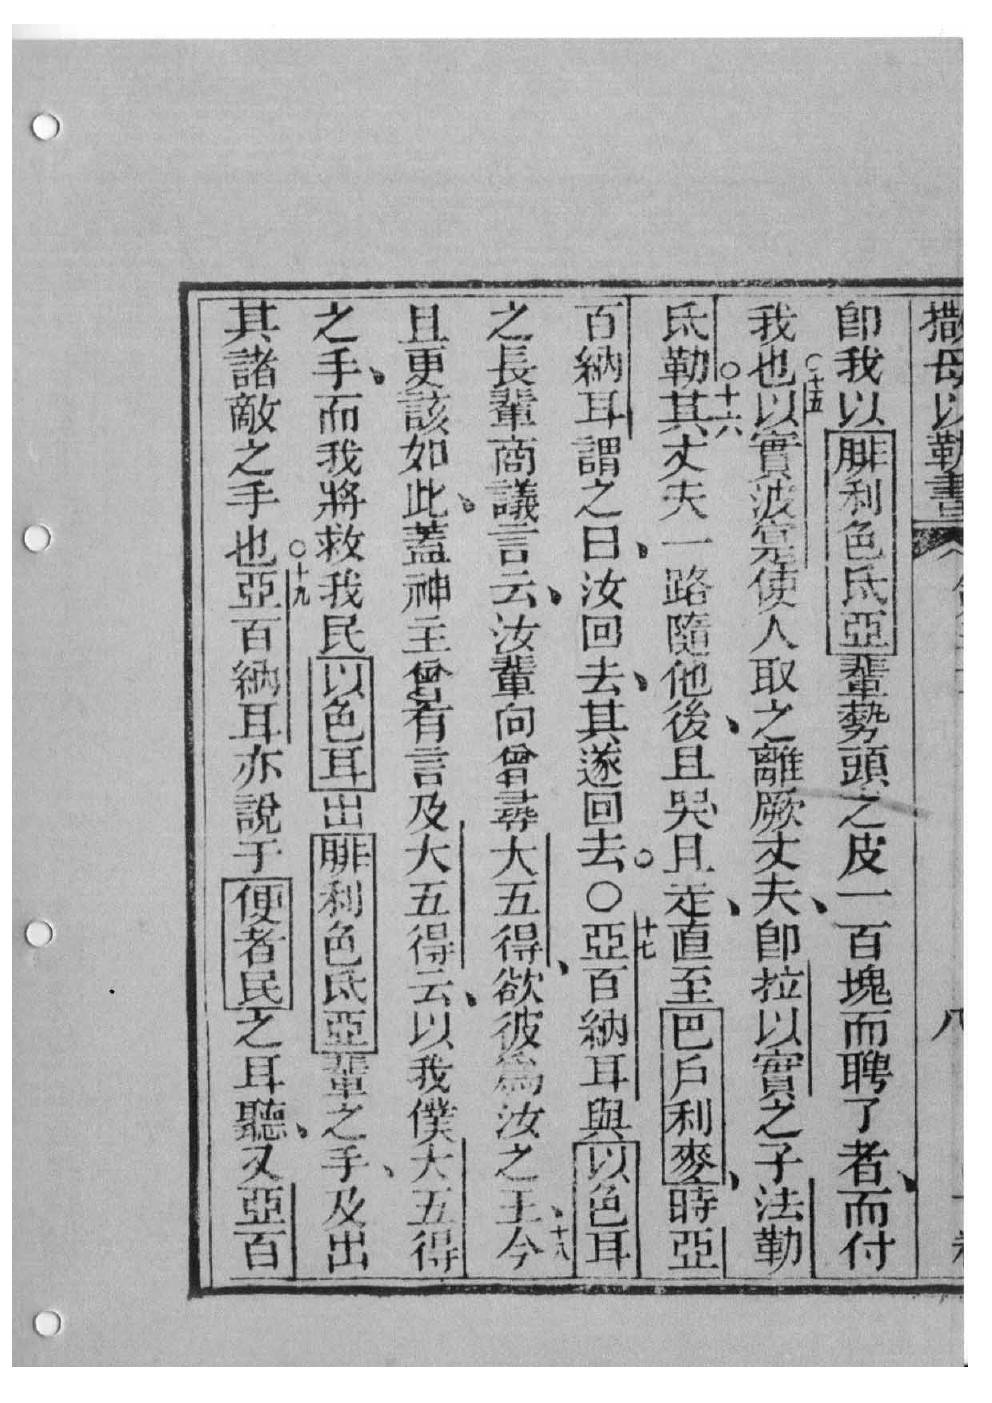 撒母以勒書
八
卽我以腓利色氐亞輩勢頭之皮一百塊而聘了者、而付
我也○十五以實波寔使人取之離厥丈夫、卽拉以實之子法勒
氐勒○十六其丈夫一路隨他後、且哭且走、直至巴戶利麥、時亞
百納耳謂之曰、汝回去、其遂回去。○十七亞百納耳與以色耳
之長輩商議言云、汝輩向曾尋大五得、欲彼爲汝之王、十八今
且更該如此、蓋神主曾有言及大五得云、以我僕大五得
之手、而我將救我民以色耳出腓利色氐亞輩之手、及出
其諸敵之手也○十九亞百納耳亦說于便者民之耳聽、又亞百